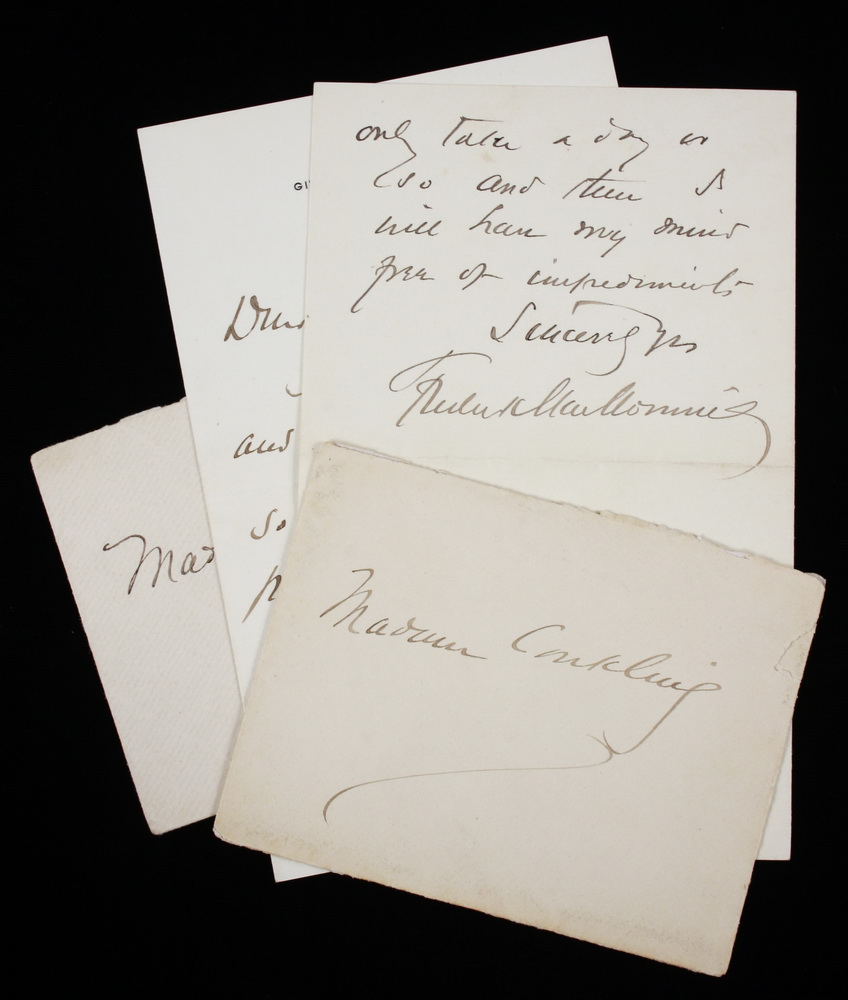 only take a day or
so and then I
will have my mind
free of impediments
Sincerely yrs
Frederick MacMonnies
GI
and
so
Mad
Madam Conkling